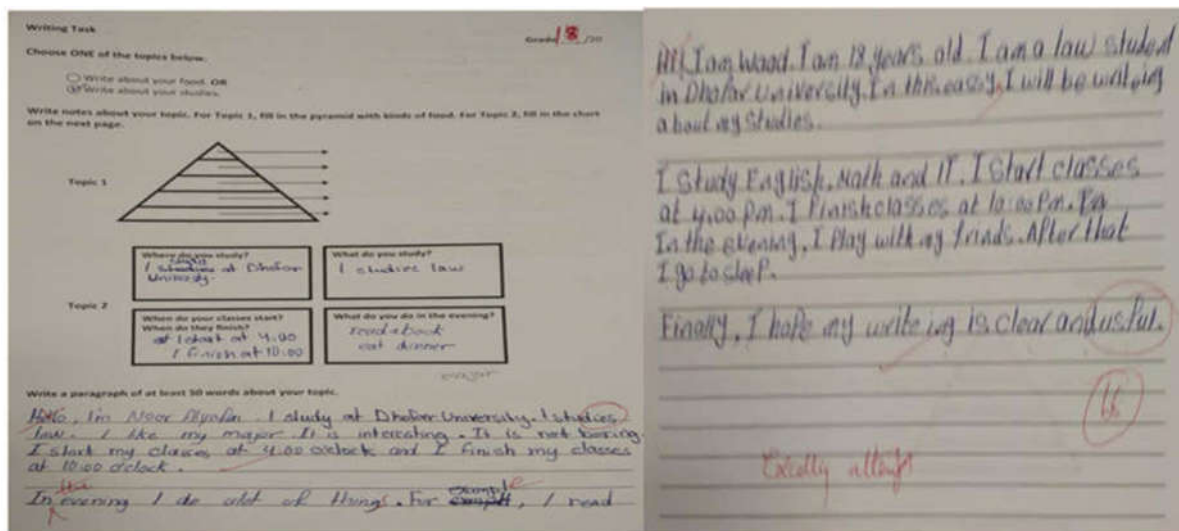 Writing Task
Grade 18 /20
Choose ONE of the topics below.
Write about your food. OR
Write about your studies.
Write notes about your topic. For Topic 1, fill in the pyramid with kinds of food. For Topic 2, fill in the chart
on the next page.
Topic 1
Topic 2
Where do you study?
I at Dhofar
University.
What do you study?
I studies law
When do your classes start?
When do they finish?
at I start at 4.00
I finish at 10:00
What do you do in the evening?
read a book
eat dinner
major
Write a paragraph of at least 50 words about your topic.
Hello, I'm Noor. I study at Dhofar University. I studies
law. I like my major. It is interesting. It is not boring.
I start my classes at 4.00 o'clock and I finish my classes
at 10:00 o'clock.
the
In evening I do alot of things. For example, I read
Hi! I am Waad. I am 18 years old. I am a law student
in Dhofar University. In this eassy, I will be writeing
about my studies.
I study English, Math and IT. I start classes
at 4:00 Pm. I finish classes at 10:00 Pm.
In the evening, I play with my frinds. After that
I go to sleep.
Finally, I hope my writeing is clear and usful.